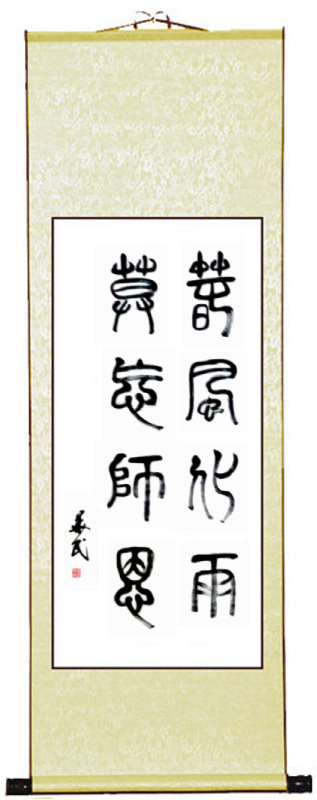 春風化雨
莫忘師恩